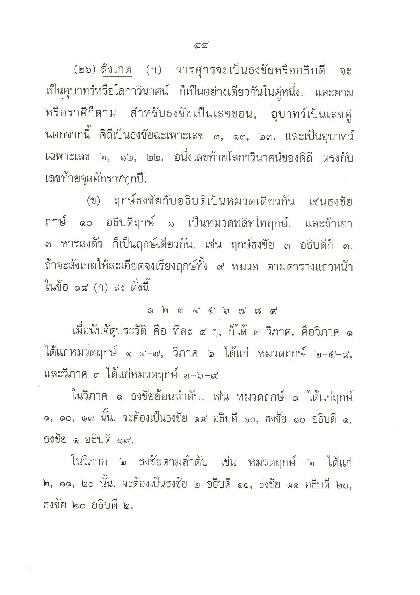 ๔๔
(๒๖) สังเกต (ก) วารศุกรจะเป็นธงชัยหรืออธิบดี จะ
เป็นอุบาทว์หรือโลกาวินาศน์ ก็เป็นอย่างเดียวกันในคู่หนึ่ง. และยาม
หรือราศีก็ตาม สำหรับธงชัยเป็นเลขขอน, อุบาทว์เป็นเลขคู่
นอกจากนี้ ดิถีเป็นธงชัยฉะเพาะเลข ๓, ๑๓, ๒๓. และเป็นอุบาทว์
เฉพาะเลข ๒, ๑๒, ๒๒. อนึ่งเลขท้ายโลกาวินาศน์ของดิถี ตรงกับ
เลขท้ายจุลศักราชทุกปี.
(ข) ฤกษ์ธงชัยกับอธิบดีเป็นหมวดเดียวกัน เช่นธงชัย
ฤกษ์ ๑๐ อธิบดีฤกษ์ ๑ เป็นหมวดทลิทโทฤกษ์. และถ้าเอา
๓ หารลงตัว ก็เป็นฤกษ์เดียวกัน. เช่น ฤกษ์ธงชัย ๓ อธิบดีก็ ๓.
ถ้าจะสังเกตให้ละเอียดจงเรียงฤกษ์ทั้ง ๙ หมวด ตามตารางแถวหน้า
ในข้อ ๑๘ (ก) ลง ดั่งนี้
๑ ๒ ๓ ๔ ๕ ๖ ๗ ๘ ๙
เมื่อนับจัตุประวัติ คือ ทีละ ๔ ๆ, ก็ได้ ๓ วิภาค. คือวิภาค ๑
ได้แก่หมวดฤกษ์ ๑-๔-๗, วิภาค ๒ ได้แก่ หมวดฤกษ์ ๒-๕-๘,
และวิภาค ๓ ได้แก่หมวดฤกษ์ ๓-๖-๙
ในวิภาค ๑ ธงชัยย้อนลำดับ. เช่น หมวดฤกษ์ ๑ ได้แก่ฤกษ์
๑, ๑๐, ๑๙ นั้น. จะต้องเป็นธงชัย ๑๙ อธิบดี ๑๐, ธงชัย ๑๐ อธิบดี ๑,
ธงชัย ๑ อธิบดี ๑๙.
ในวิภาค ๒ ธงชัยตามลำดับ เช่น หมวดฤกษ์ ๒ ได้แก่
๒, ๑๑, ๒๐ นั้น. จะต้องเป็นธงชัย ๒ อธิบดี ๑๑, ธงชัย ๑๑ อธิบดี ๒๐,
ธงชัย ๒๐ อธิบดี ๒.